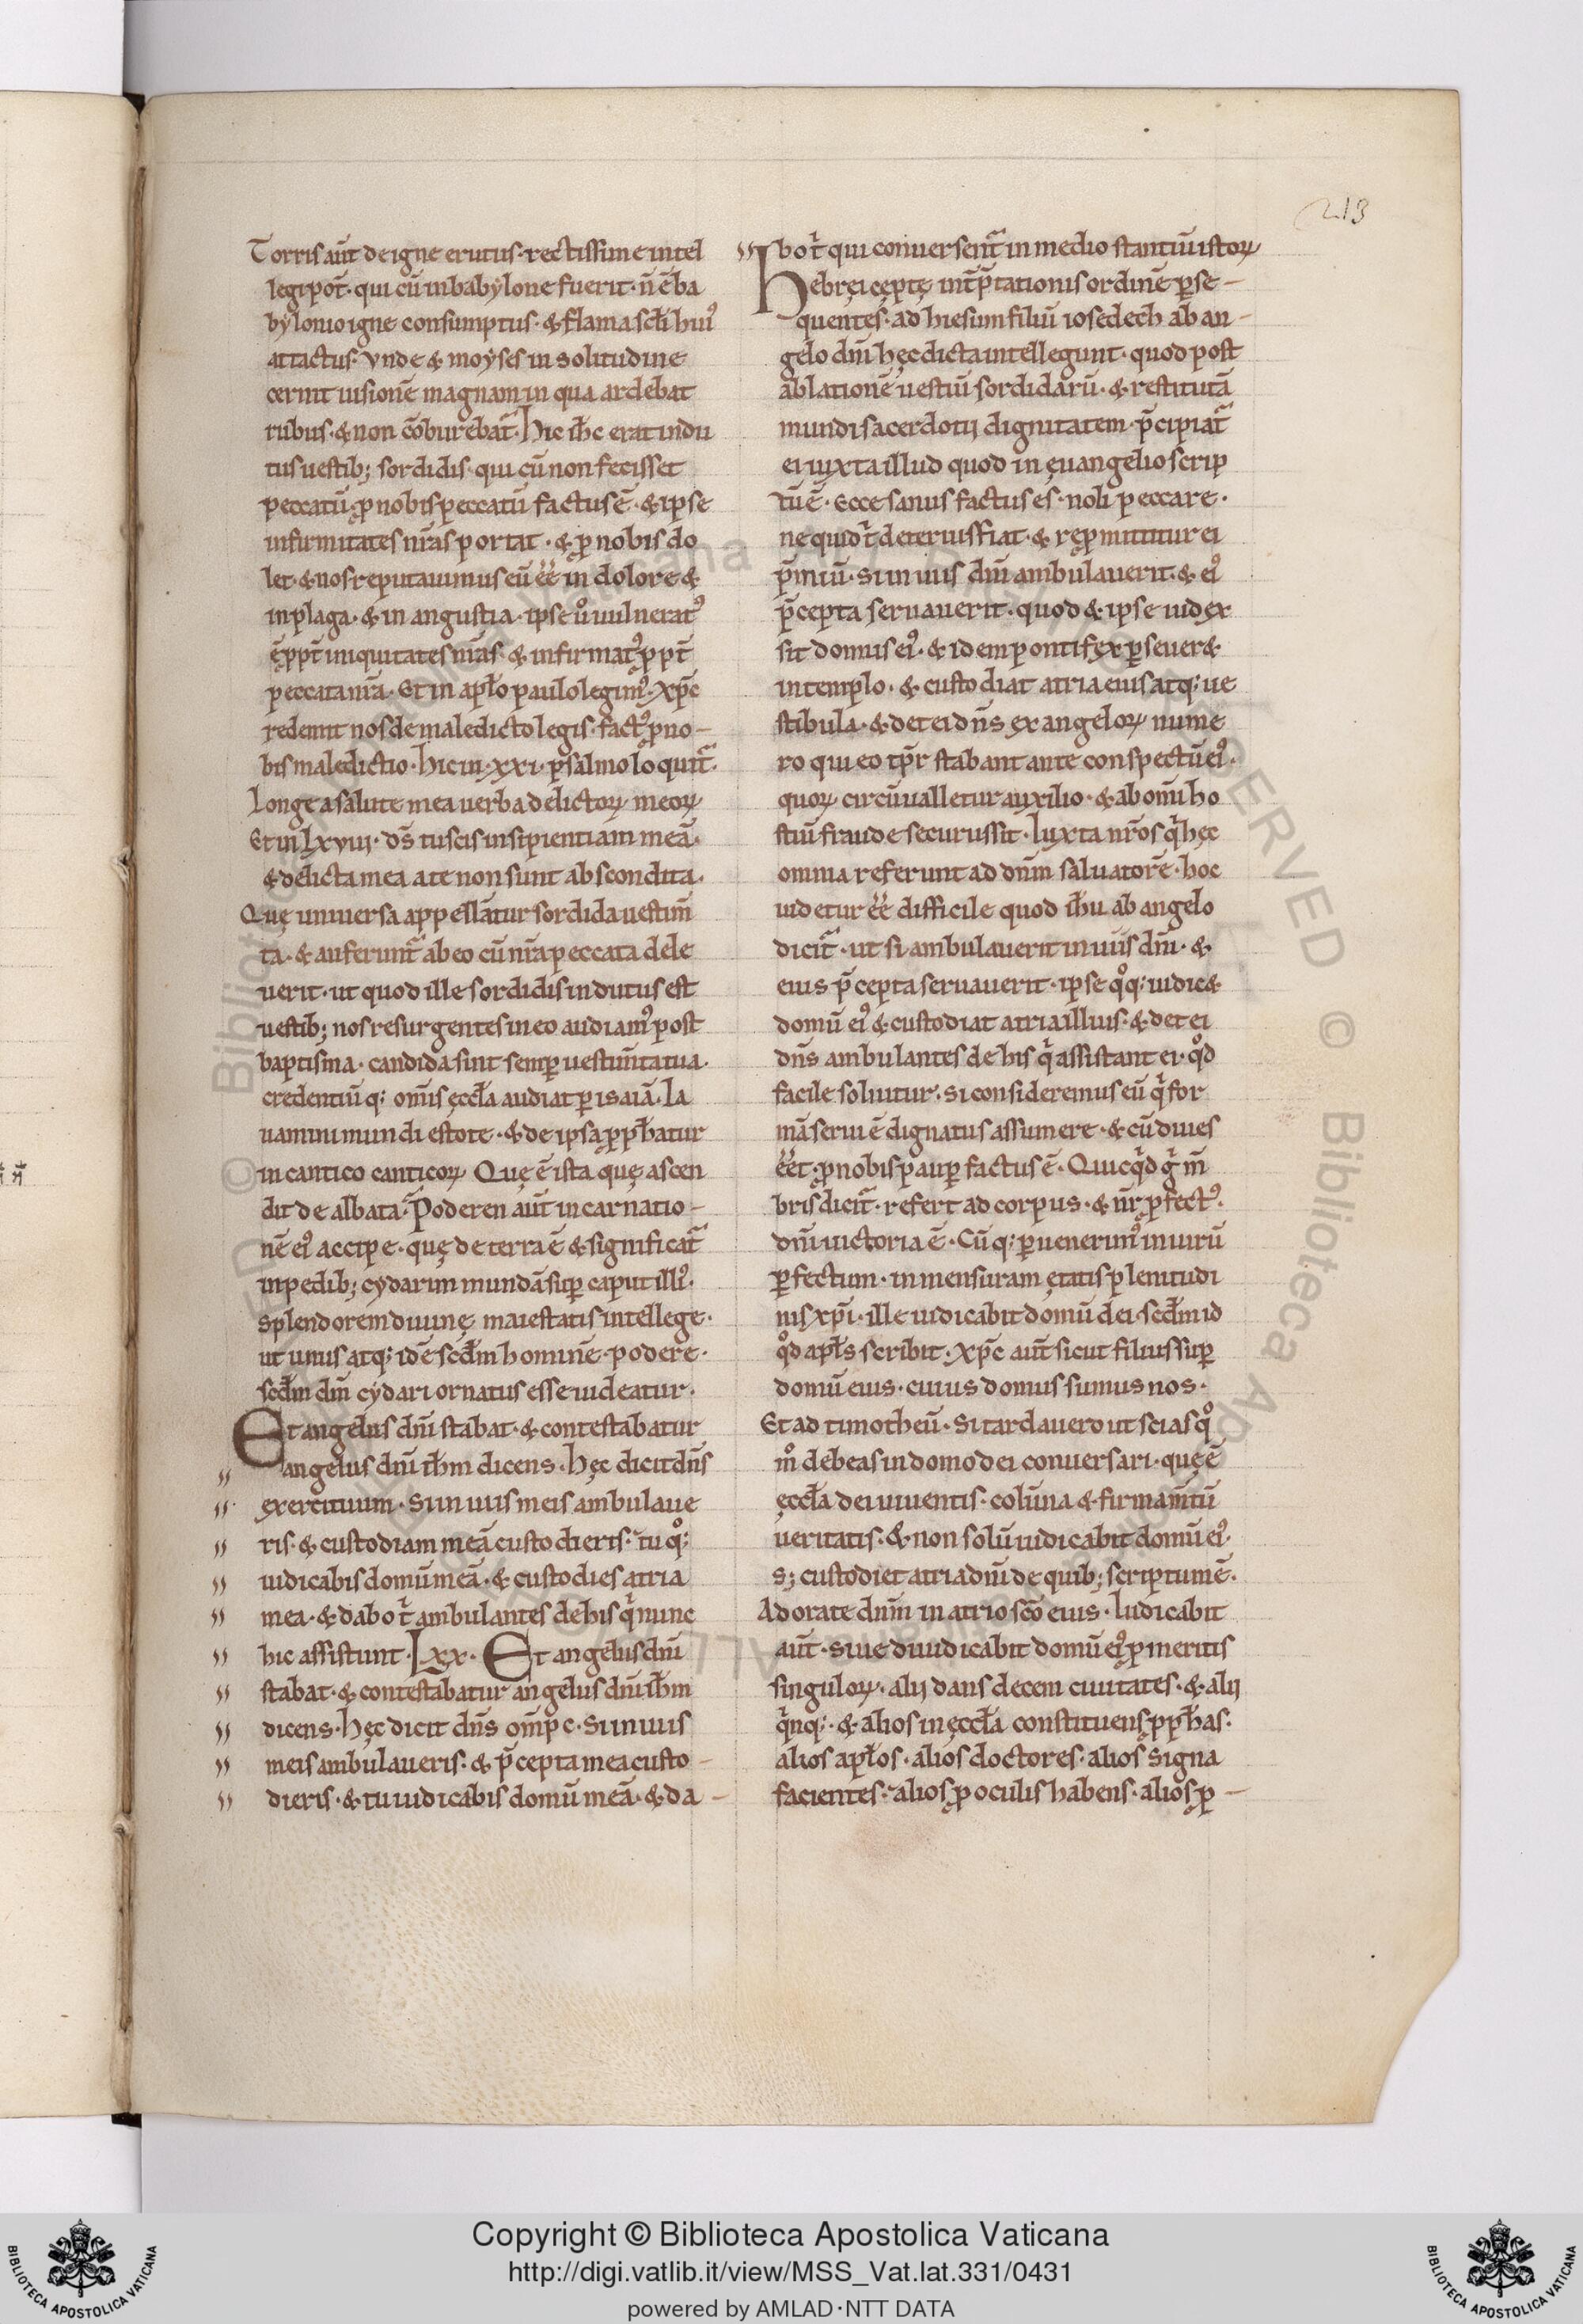 213
Torris aūt de igne erutus· rectissime intel
legi pot̄· qui cū in babylone fuerit· n̄ ē ba
bylonio igne consumptus· & flama scl̄i huiꝰ
attactus· Vnde & moyses in solitudine
cernit uisionē magnam in qua ardebat
rubus· & non cōburebat᷑· Hic ih̄c erat indu
tus uestib; sordidis· qui cū non fecisset
peccatū· ꝓ nobis peccatū factus ē· & ipse
infirmitates nr̄as portat· & ꝓ nobis do
let· & nos reputauimus eū ēē in dolore &
in plaga· & in angustia· ipse ů uulneratꝰ
ē ꝓpt̄ iniquitates nr̄as· & infirmatꝰ ꝓpt̄
peccata nr̄a· Et in apl̄o paulo legimꝰ· xp̄c
redemit nos de maledicto legis· factꝰ ꝓ no-
bis maledictio· Hic in xxi· psalmo loquit᷑·
Longe a salute mea uerba delictoꝝ meoꝝ
Et in Lxviii· ds̄ tu scis insipientiam meā·
& delicta mea a te non sunt abscondita·
Quę uniuersa appellātur sordida uestim̄
ta· & auferunt᷑ ab eo cū nr̄a peccata dele
uerit· ut quod ille sordidis indutus est
uestib; nos resurgentes in eo audiamꝰ post
baptisma· candida sint semꝑ uestim̄ta tua·
credentiū q; om̄is ęccl̄a audiat ꝑ isaiā· La
uamini mundi estote· & de ipsa ꝓph̄atur
in cantico canticoꝝ Quę ē ista quę ascen
dit dealbata· Poderen aūt incarnatio-
nē eiꝰ accipe· quę de terra ē & significat᷑
in pedib; cydarim mundā suꝑ caput illiꝰ·
splendorem diuinę maiestatis intellege·
ut unus atq; idē scd̄m hominē· podere·
scd̄m dm̄ cydari ornatus esse uideatur·
Et angelus dn̄i stabat· & contestabatur
angelus dn̄i ih̄m dicens· Hęc dicit dn̄s
exercituum· Si in uiis meis ambulaue
ris· & custodiam meā custodieris· tu qꝰ;
iudicabis domū meā· & custodies atria
mea· & dabo t̄ ambulantes de his q̄ nunc
hic assistunt· Lxx· Et angelus dn̄i
stabat· & contestabatur angelus dn̄i ih̄m
dicens· Hęc dicit dn̄s om̄pc· Si in uiis
meis ambulaueris· & p̄cepta mea custo-
dieris· & tu iudicabis domū meā· & da-
bo t̄ qui conuersent᷑ in medio stantiū istoꝝ
Hebręi cęptę int̄p̄tationis ordinē ꝑse-
quentes· ad hiesum filiū iosedech ab an-
gelo dn̄i hęc dicta intellegunt· quod post
ablationē uestiū sordidarū· & restitutā
mundi sacerdotii dignitatem· p̄cipiat᷑
ei iuxta illud quod in ęuangelio scrip
tū ē· Ecce sanus factus es· noli peccare·
ne quid t̄ deterius fiat· & reꝓmittitur ei
p̄miū· Si in uiis dn̄i ambulauerit· & eiꝰ
p̄cepta seruauerit· quod & ipse iudex
sit domus eiꝰ· & idem pontifex ꝑseuer&
in templo· & custodiat atria eius atq; ue
stibula· & det ei dn̄s ex angeloꝝ nume
ro qui eo tp̄r stabant ante conspectū eiꝰ·
quoꝝ circūualletur auxilio· & ab om̄i ho
stiū fraude securus sit· Iuxta nr̄os q̄ hęc
omnia referunt ad dn̄m saluatorē· hoc
uidetur ēē difficile quod ih̄u ab angelo
dicit᷑· ut si ambulauerit in uiis dn̄i· &
eius p̄cepta seruauerit· ipse qꝰq; iudic&
domū eiꝰ & custodiat atria illius· & det ei
dn̄s ambulantes de his q̄ assistant ei· qd̊
facile soluitur· si consideremus eū q̄ for
mā serui ē dignatus assumere· & cū diues
ēēt· ꝓ nobis pauꝑ factus ē· Quicq̄d g̊ m̄
bris dicit᷑· refert ad corpus· & nr̄ ꝓfectꝰ·
dn̄i uictoria ē· Cū q; ꝑuenerimꝰ in uirū
ꝑfectum· in mensuram ętatis plenitudi
nis xp̄i· ille iudicabit domū dei· scd̄m id
qd̊ apl̄s scribit· xp̄c aūt sicut filius suꝑ
domū eius· cuius domus sumus nos·
Et ad timotheū· Si tardauero ut scias qꝰ
mꝰ debeas in domo dei conuersari· quę ē
ęccl̄a dei uiuentis· colūna & firmam̄tū
ueritatis· & non solū iudicabit domū eiꝰ·
s; custodiet atria dn̄i de quib; scriptum ē·
Adorate dn̄m in atrio sc̄o eius· Iudicabit
aūt· siue diiudicabit domū eiꝰ ꝓ meritis
singuloꝝ· alii dans decem ciuitates· & alii
q̄nq;· & alios in ęccl̄a constituens ꝓph̄as·
alios apl̄os· alios doctores· alios signa
facientes· alios ꝓ oculis habens· alios ꝓ-
Copyright © Biblioteca Apostolica Vaticana
http://digi.vatlib.it/view/MSS_Vat.lat.331/0431
powered by AMLAD·NTT DATA
BIBLIOTECA APOSTOLICA VATICANA
BIBLIOTECA APOSTOLICA VATICANA